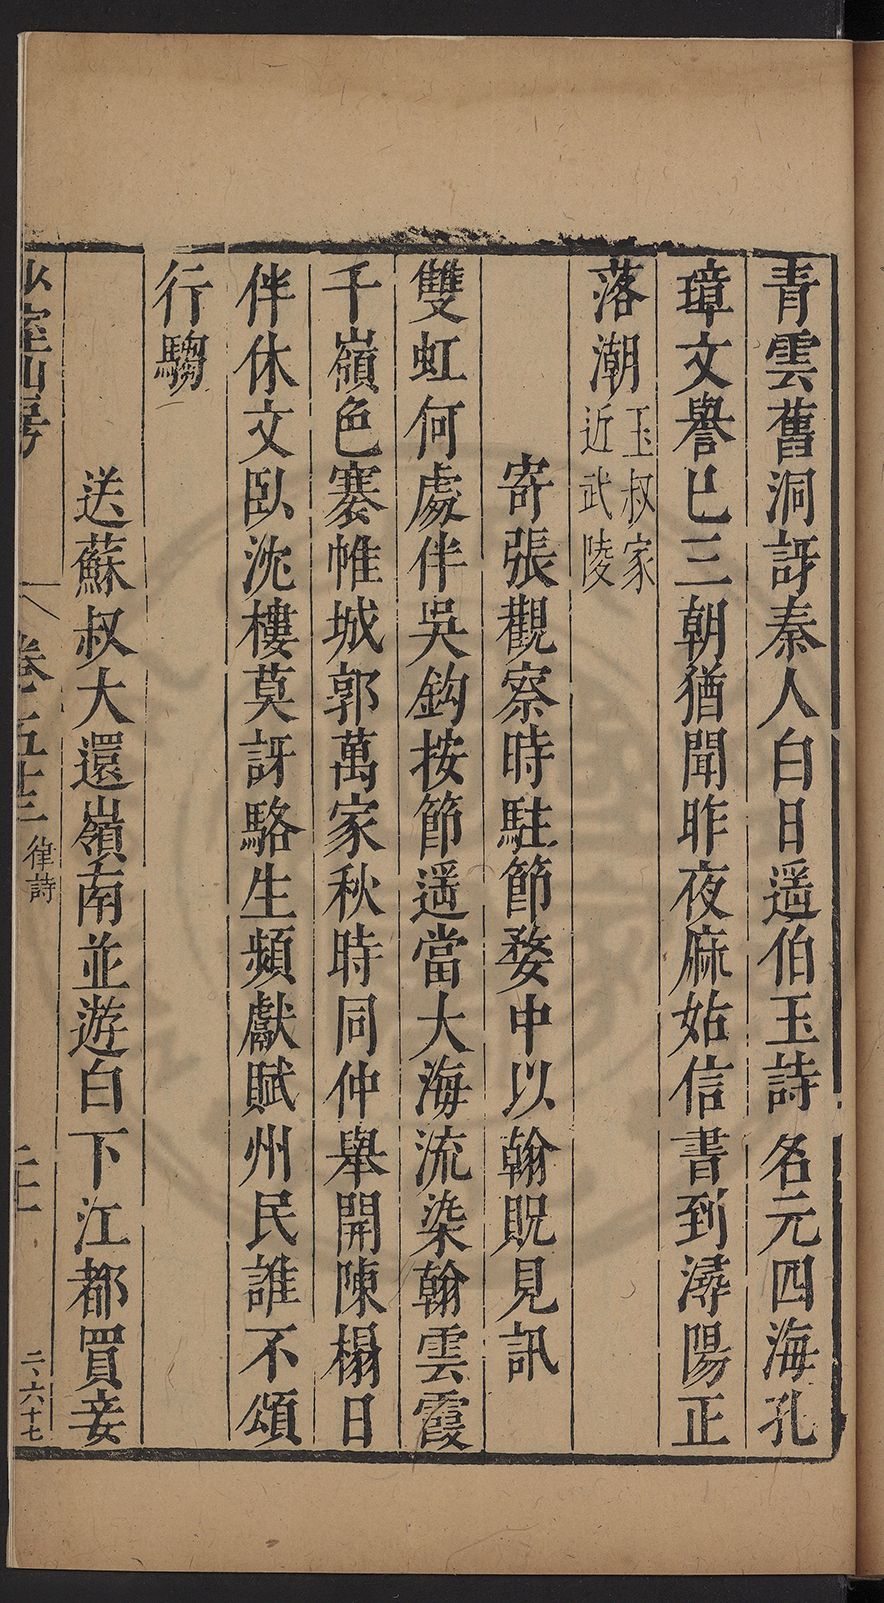 青雲舊洞訝秦人白日遥伯玉詩名元四海孔
璋文譽已三朝猶聞昨夜麻姑信書到潯陽正
落潮玉叔家近武陵
寄張觀察時駐節婺中以翰貺見訊
雙虹何處伴吳鈎按節遥當大海流染翰雲霞
千嶺色褰帷城郭萬家秋時同仲舉開陳榻日
伴休文臥沈樓莫訝駱生頻獻賦州民誰不頌
行騶
送蘇叔大還嶺南並遊白下江都買妾
少室山房
卷之五十三 律詩
二六十七